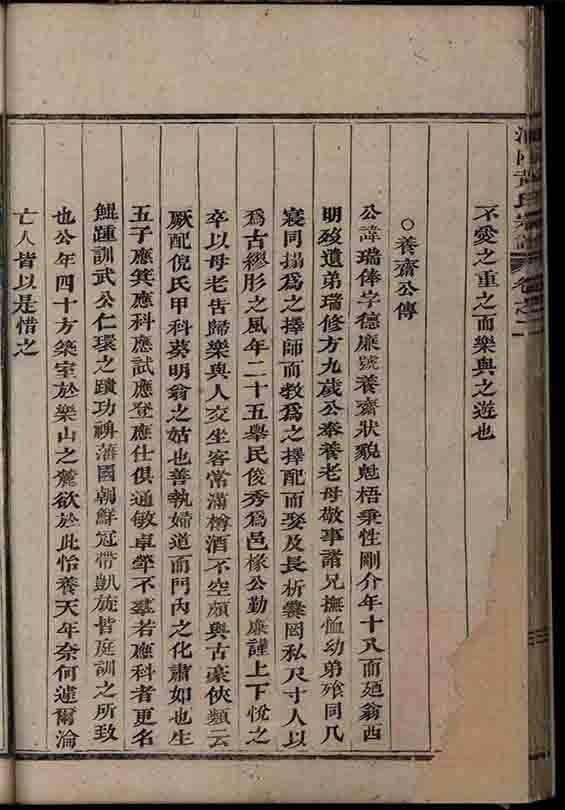 不愛之重之而樂與之遊也
○養齋公傳
公諱瑞俸字德廉號養齋狀貌魁梧秉性剛介年十八而廼翁西
明歿遺弟瑞修方九歲公奉養老母敬事諸兄撫恤幼弟飧同几
寢同榻爲之擇師而教爲之擇配而娶及長析爨罔私尺寸人以
爲古繆肜之風年二十五舉民俊秀爲邑椽公勤廉謹上下悅之
卒以母老告歸樂與人交坐客常滿樽酒不空頗與古豪俠類云
厥配倪氏甲科葵明翁之姑也善執婦道而門內之化肅如也生
五子應箕應科應試應登應仕俱通敏卓犖不羣若應科者更名
鯤踵訓武公仁環之蹟功禆藩國朝鮮冠帶凱旋皆庭訓之所致
也公年四十方築室於樂山之麓欲於此怡養天年奈何遽爾淪
亡人皆以是惜之
氏宗譜 卷之二